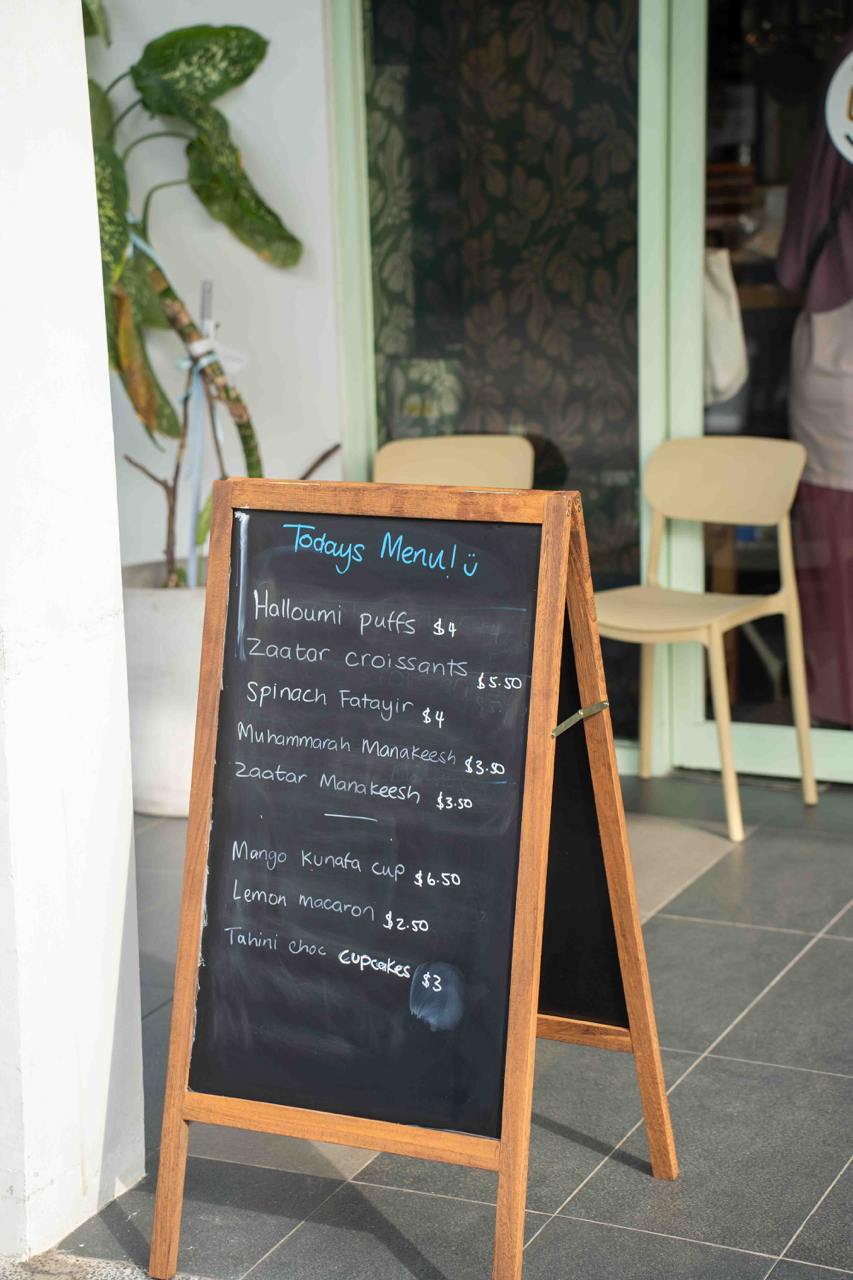 Todays Menu! ü
Halloumi puffs $4
Zaatar croissants $5.50
Spinach Fatayir $4
Muhammarah Manakeesh $3.50
Zaatar Manakeesh $3.50
Mango Kunafa cup $6.50
Lemon macaron $2.50
Tahini choc cupcakes $3